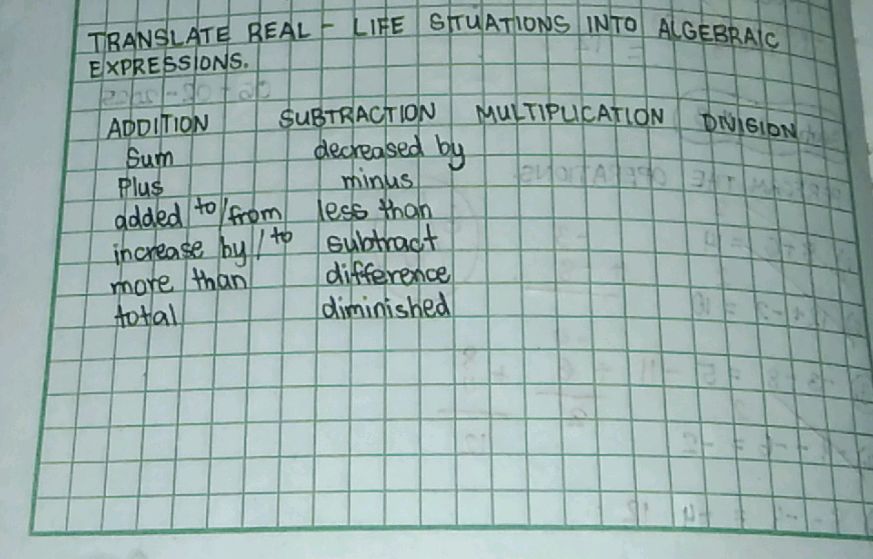 TRANSLATE REAL - LIFE SITUATIONS INTO ALGEBRAIC
EXPRESSIONS.
ADDITION SUBTRACTION MULTIPLICATION DIVISION
Sum decreased by
Plus minus
added to/from less than
increase by/to subtract
more than difference
total diminished